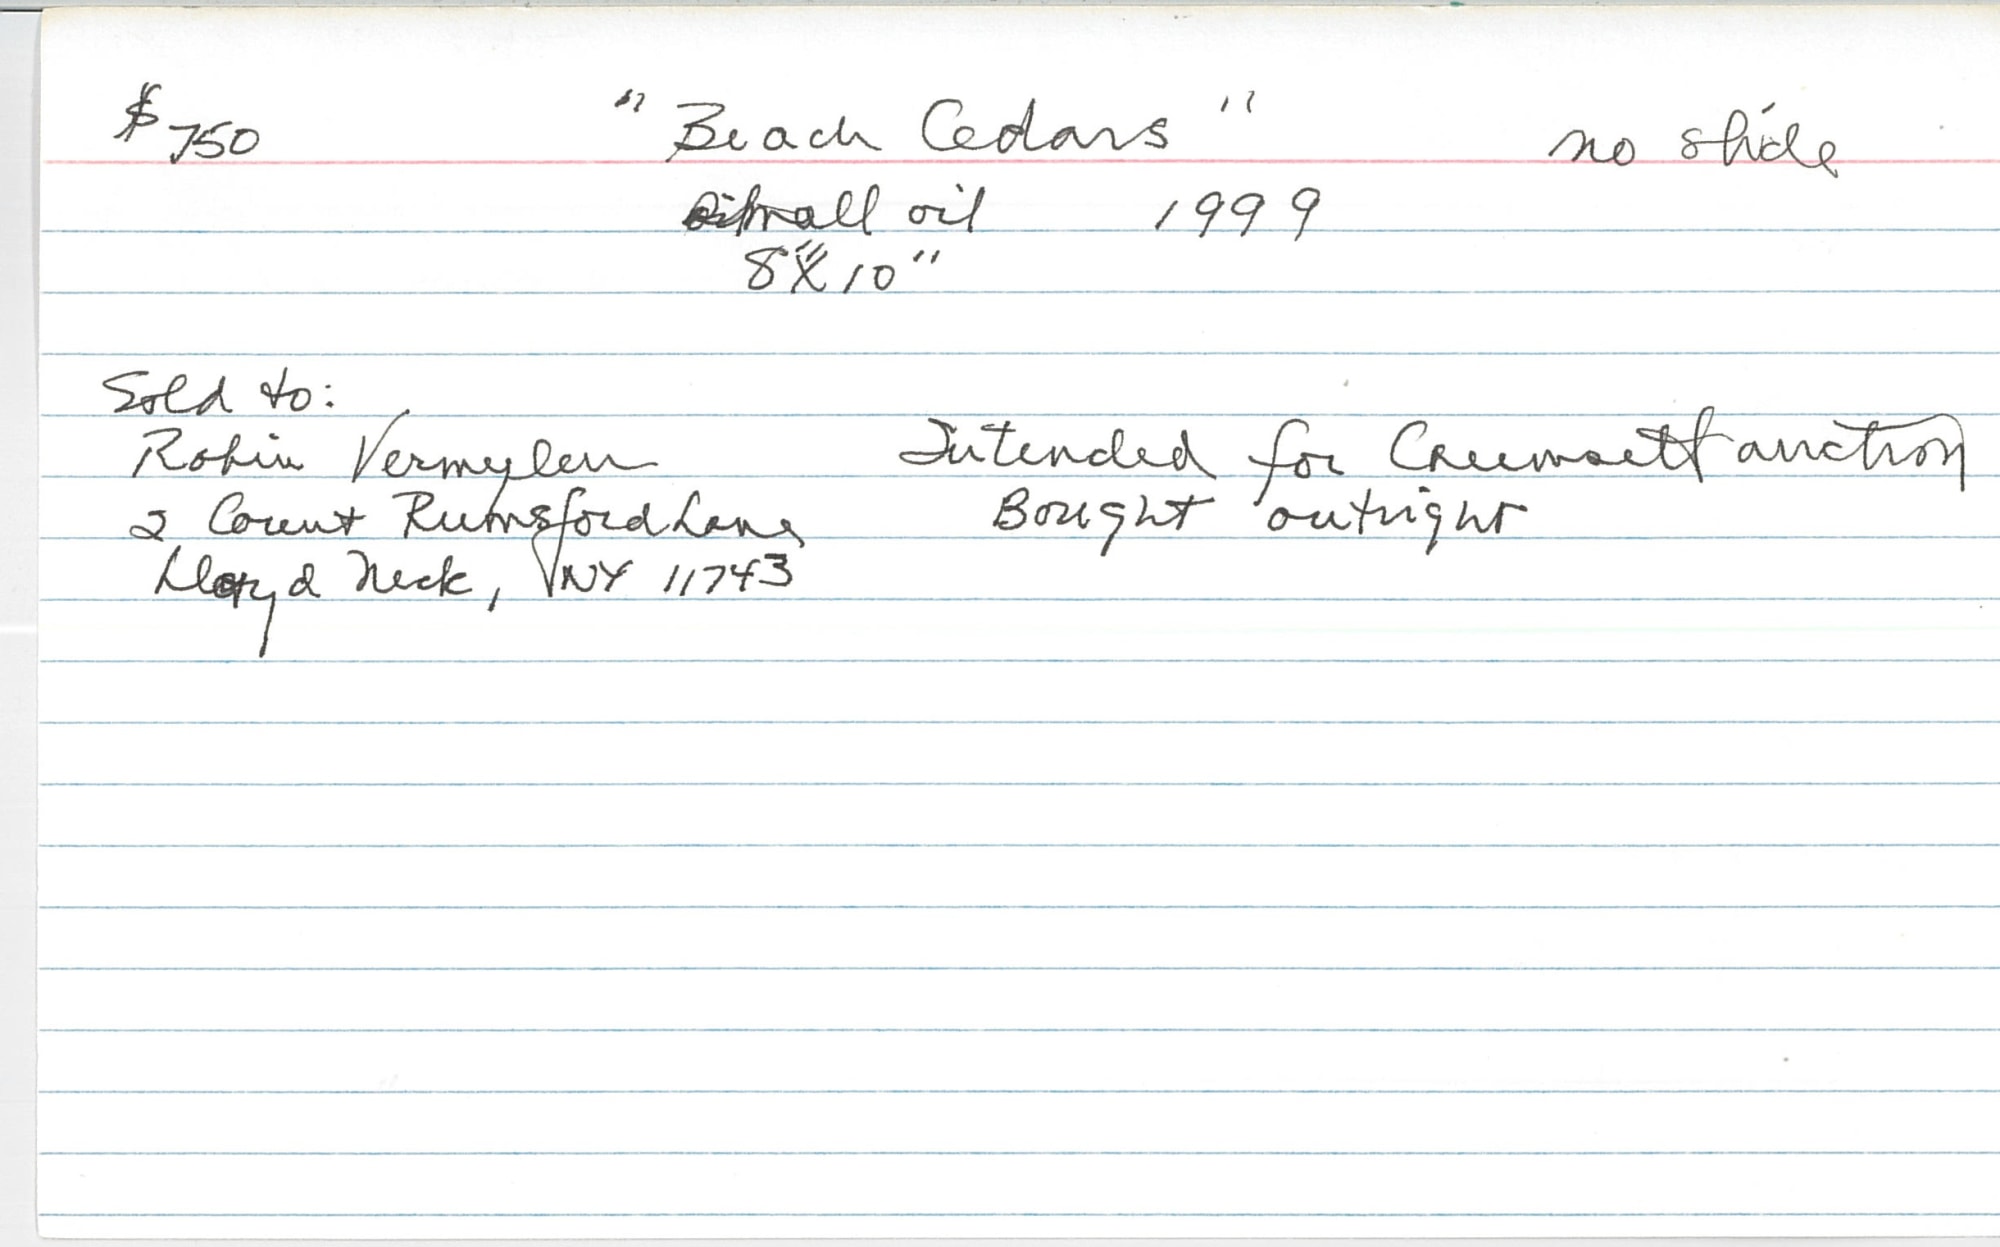 $750 "Beach Cedars" no slide
small oil 1999
8" X 10"
Sold to:
Robin Vermylen Intended for Caumsett auction
2 Count Rumsford Lane Bought outright
Lloyd Neck, NY 11743